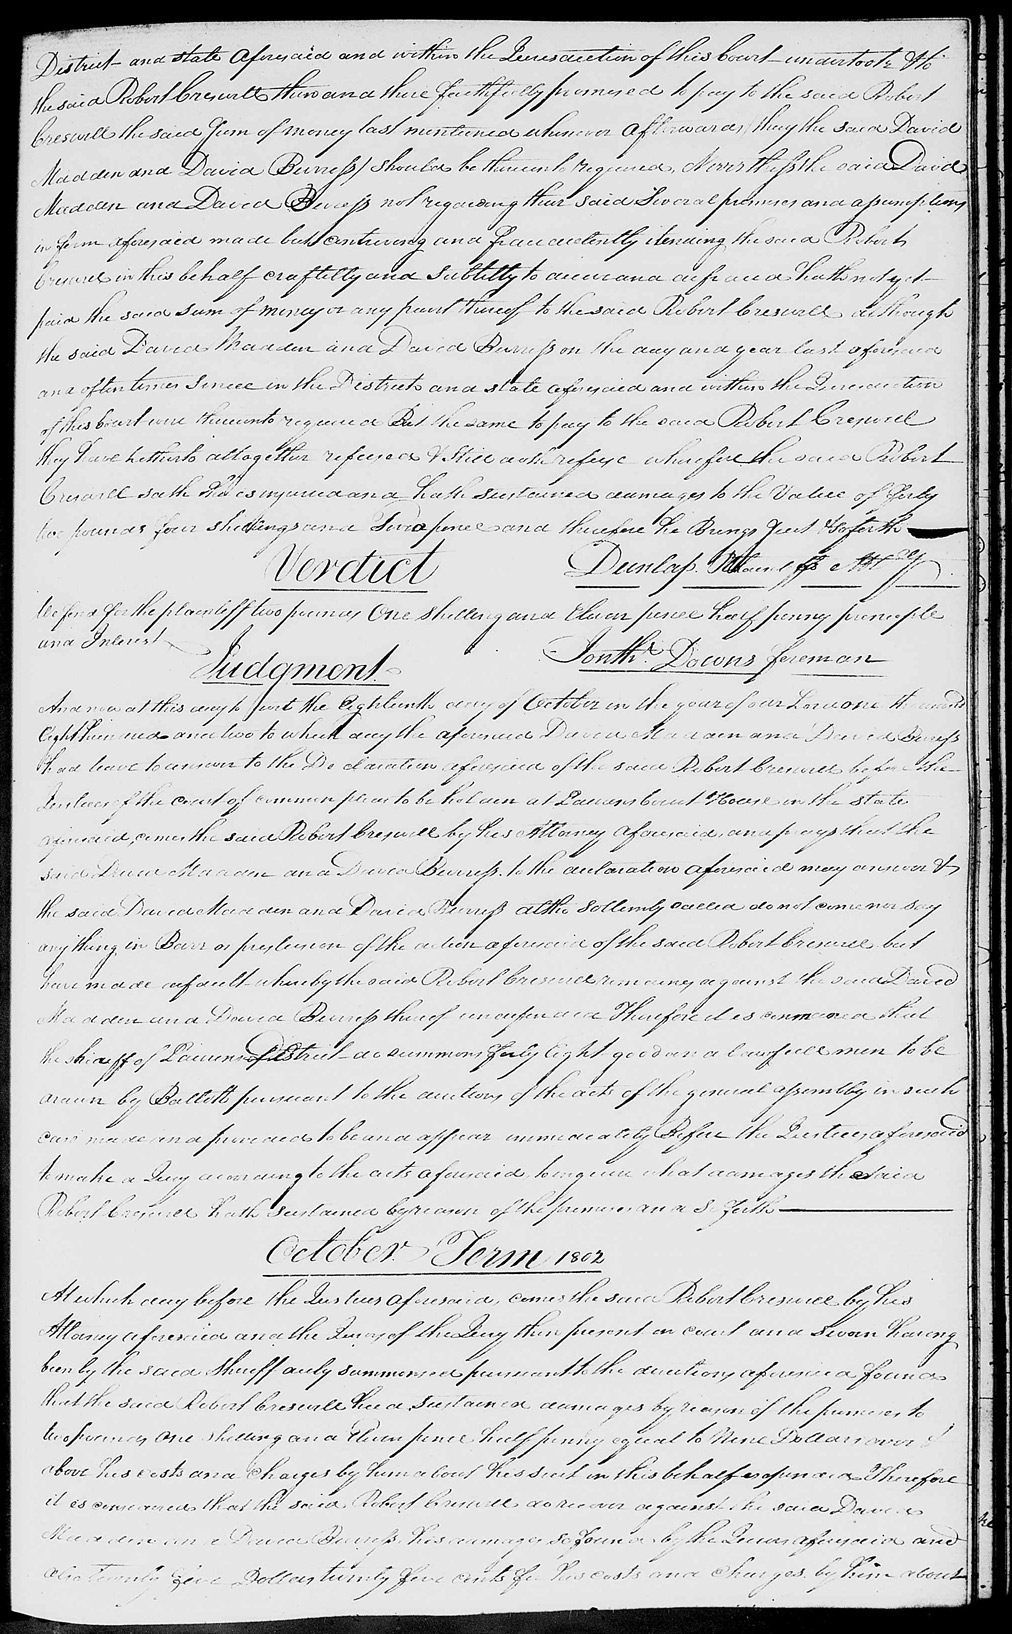 District and state aforesaid and within the Jurisdiction of this Court undertook & to
the said Robert Creswell then and there faithfully promised to pay to the said Robert
Creswell the said Sum of money last mentioned whenever afterwards they the said David
Madden and David Burress should be thereunto required, Nevertheless the said David
Madden and David Burress not regarding their said Several promises and assumptions
in form aforesaid made but contriving and fraudulently itending the said Robert
Creswell in this behalf craftilly and subtilly to deceive and defraud hath not yet
paid the said sum of money or any part thereof to the said Robert Creswell although
the said David Madden and David Burress on the day and year last aforesaid
and often times Since in the District and state aforesaid and within the Jurisdiction
of this Court were thereunto required But the same to pay to the said Robert Creswell
they have hetherto altogether refused & Still doth refuse wherefore the said Robert
Creswell saith he is injured and hath sustained damages to the Value of forty
two pounds four shillings and Two pence and therefore he Brings Suit & so forth
Verdict Dunlap Plaintiffs Atty
We find for the plaintiff two pounds One Shilling and Eleven pence half penny principle
and Interest
Jonth. Downs foreman
Judgment
And now at this day to wit the Eighteenth day of October in the year of our Lord one thousand
Eight hundred and two to which day the aforesaid David Madden and David Burress
had leave to answer to the Declaration aforesaid of the said Robert Creswell before the
Justices of the court of common pleas to be holden at Laurens Court House in the state
aforesaid, comes the said Robert Creswell by his Attorney aforesaid, and prays that the
said David Madden and David Burress to the declaration aforesaid may answer &
the said David Madden and David Burress altho sollemly called do not come nor say
any thing in Barr or preclusion of the action aforesaid of the said Robert Creswell but
have made default whereby the said Robert Creswell remains against the said David
Madden and David Burress thereof undefended Therefore it is commanded that
the sheriff of Laurens District do summons forty Eight good and lawfull men to be
drawn by Ballott pursuant to the directions of the acts of the general assembly in such
case made and provided to be and appear immediately Before the Justices aforesaid
to make a Jury according to the acts aforesaid, to inquire what damages the said
Robert Creswell hath Sustained by reason of the premises and So forth
October Term 1802
At which day before the Justices aforesaid, comes the said Robert Creswell by his
Attorney aforesaid and the Jurors of the Jury then present in court and sworn having
been by the said Sheriff duly summoned pursuant to the directions aforesaid found
that the said Robert Creswell had sustained damages by reason of the premises to
two pounds One shilling and Eleven pence half penny equal to Nine Dollars over &
above his costs and Charges by him about his suit in this behalf expended Therefore
it is considered that the said Robert Creswell do recover against the said David
Madden and David Burress his damages So found by the Jurors aforesaid and
also twenty five Dollars twenty five cents for his costs and charges by him about